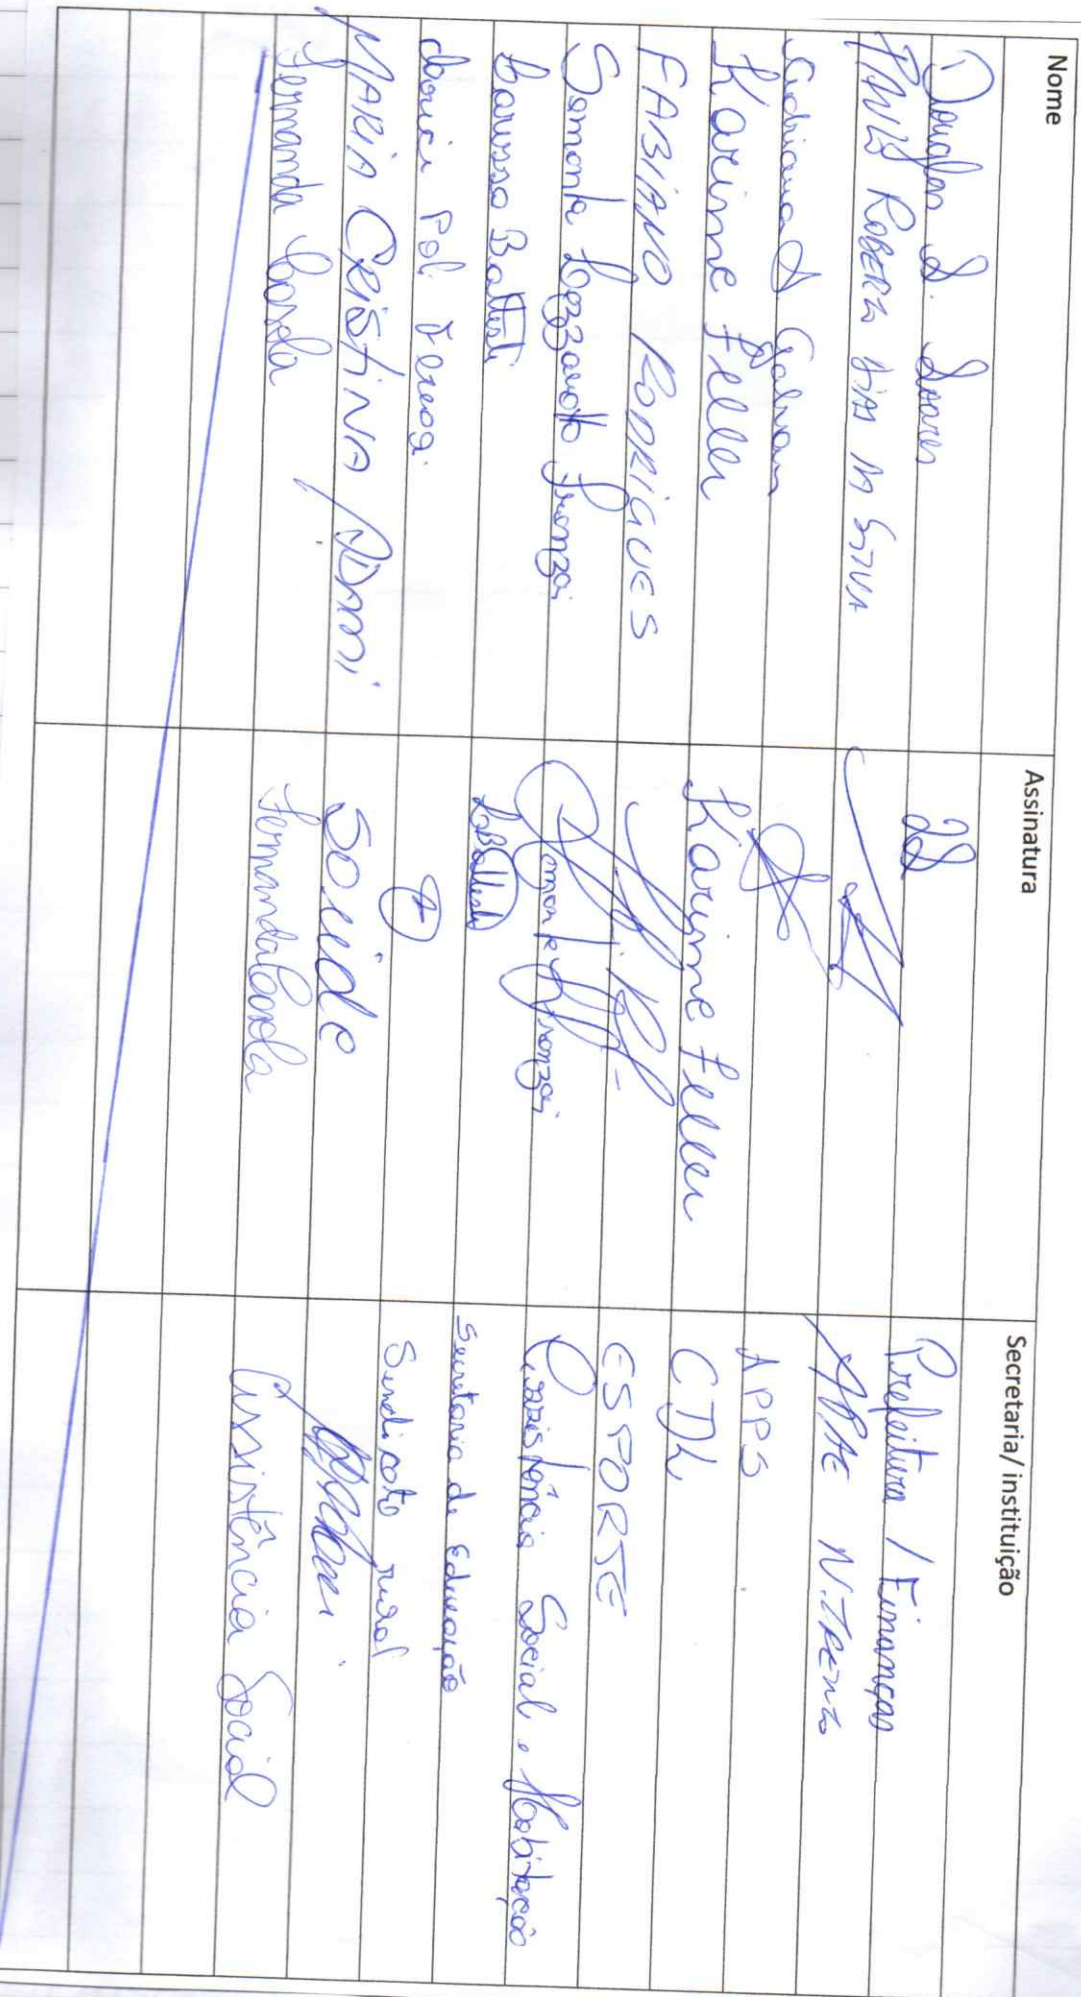 Nome Assinatura Secretaria/ instituição
Douglas S. Soares Prefeitura / Finanças
Roberto Dias da Silva APAE N. Trento
Adriana A Galvan APPS
Karine Feller Karine Feller CDL
FABIANO RODRIGUES ESPORTE
Lezzarotto Assistência Social e Habitação
Larissa Battisti LBattisti Secretaria de Educação
Poli Sindicato rural
MARIA CRISTINA Adami Saúde
Fernanda Carola Fernanda Carola Assistência Social